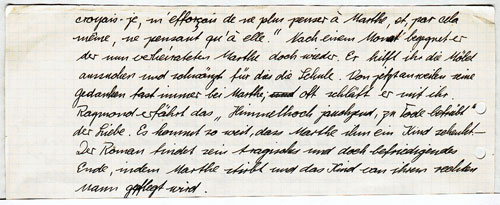 croyais-je, m'efforçais de ne plus penser à Marthe, et, par cela
même, ne pensant qu'à elle." Nach einem Monat begegnet er
der nun verheirateten Marthe doch wieder. Er hilft ihr die Möbel
aussuchen und schwänzt für das die Schule. Von jetzt an weilen seine
gedanken fast immer bei Marthe, oft schläft er mit ihr.
Raymond erfährt das "Himmelhoch jauchzend, zu Tode betrübt"
der Liebe. Es kommt so weit, dass Marthe ihm ein Kind schenkt.
Der Roman findet sein tragisches und doch befriedigendes
Ende, indem Marthe stirbt und das Kind von ihrem rechten
Mann gepflegt wird.